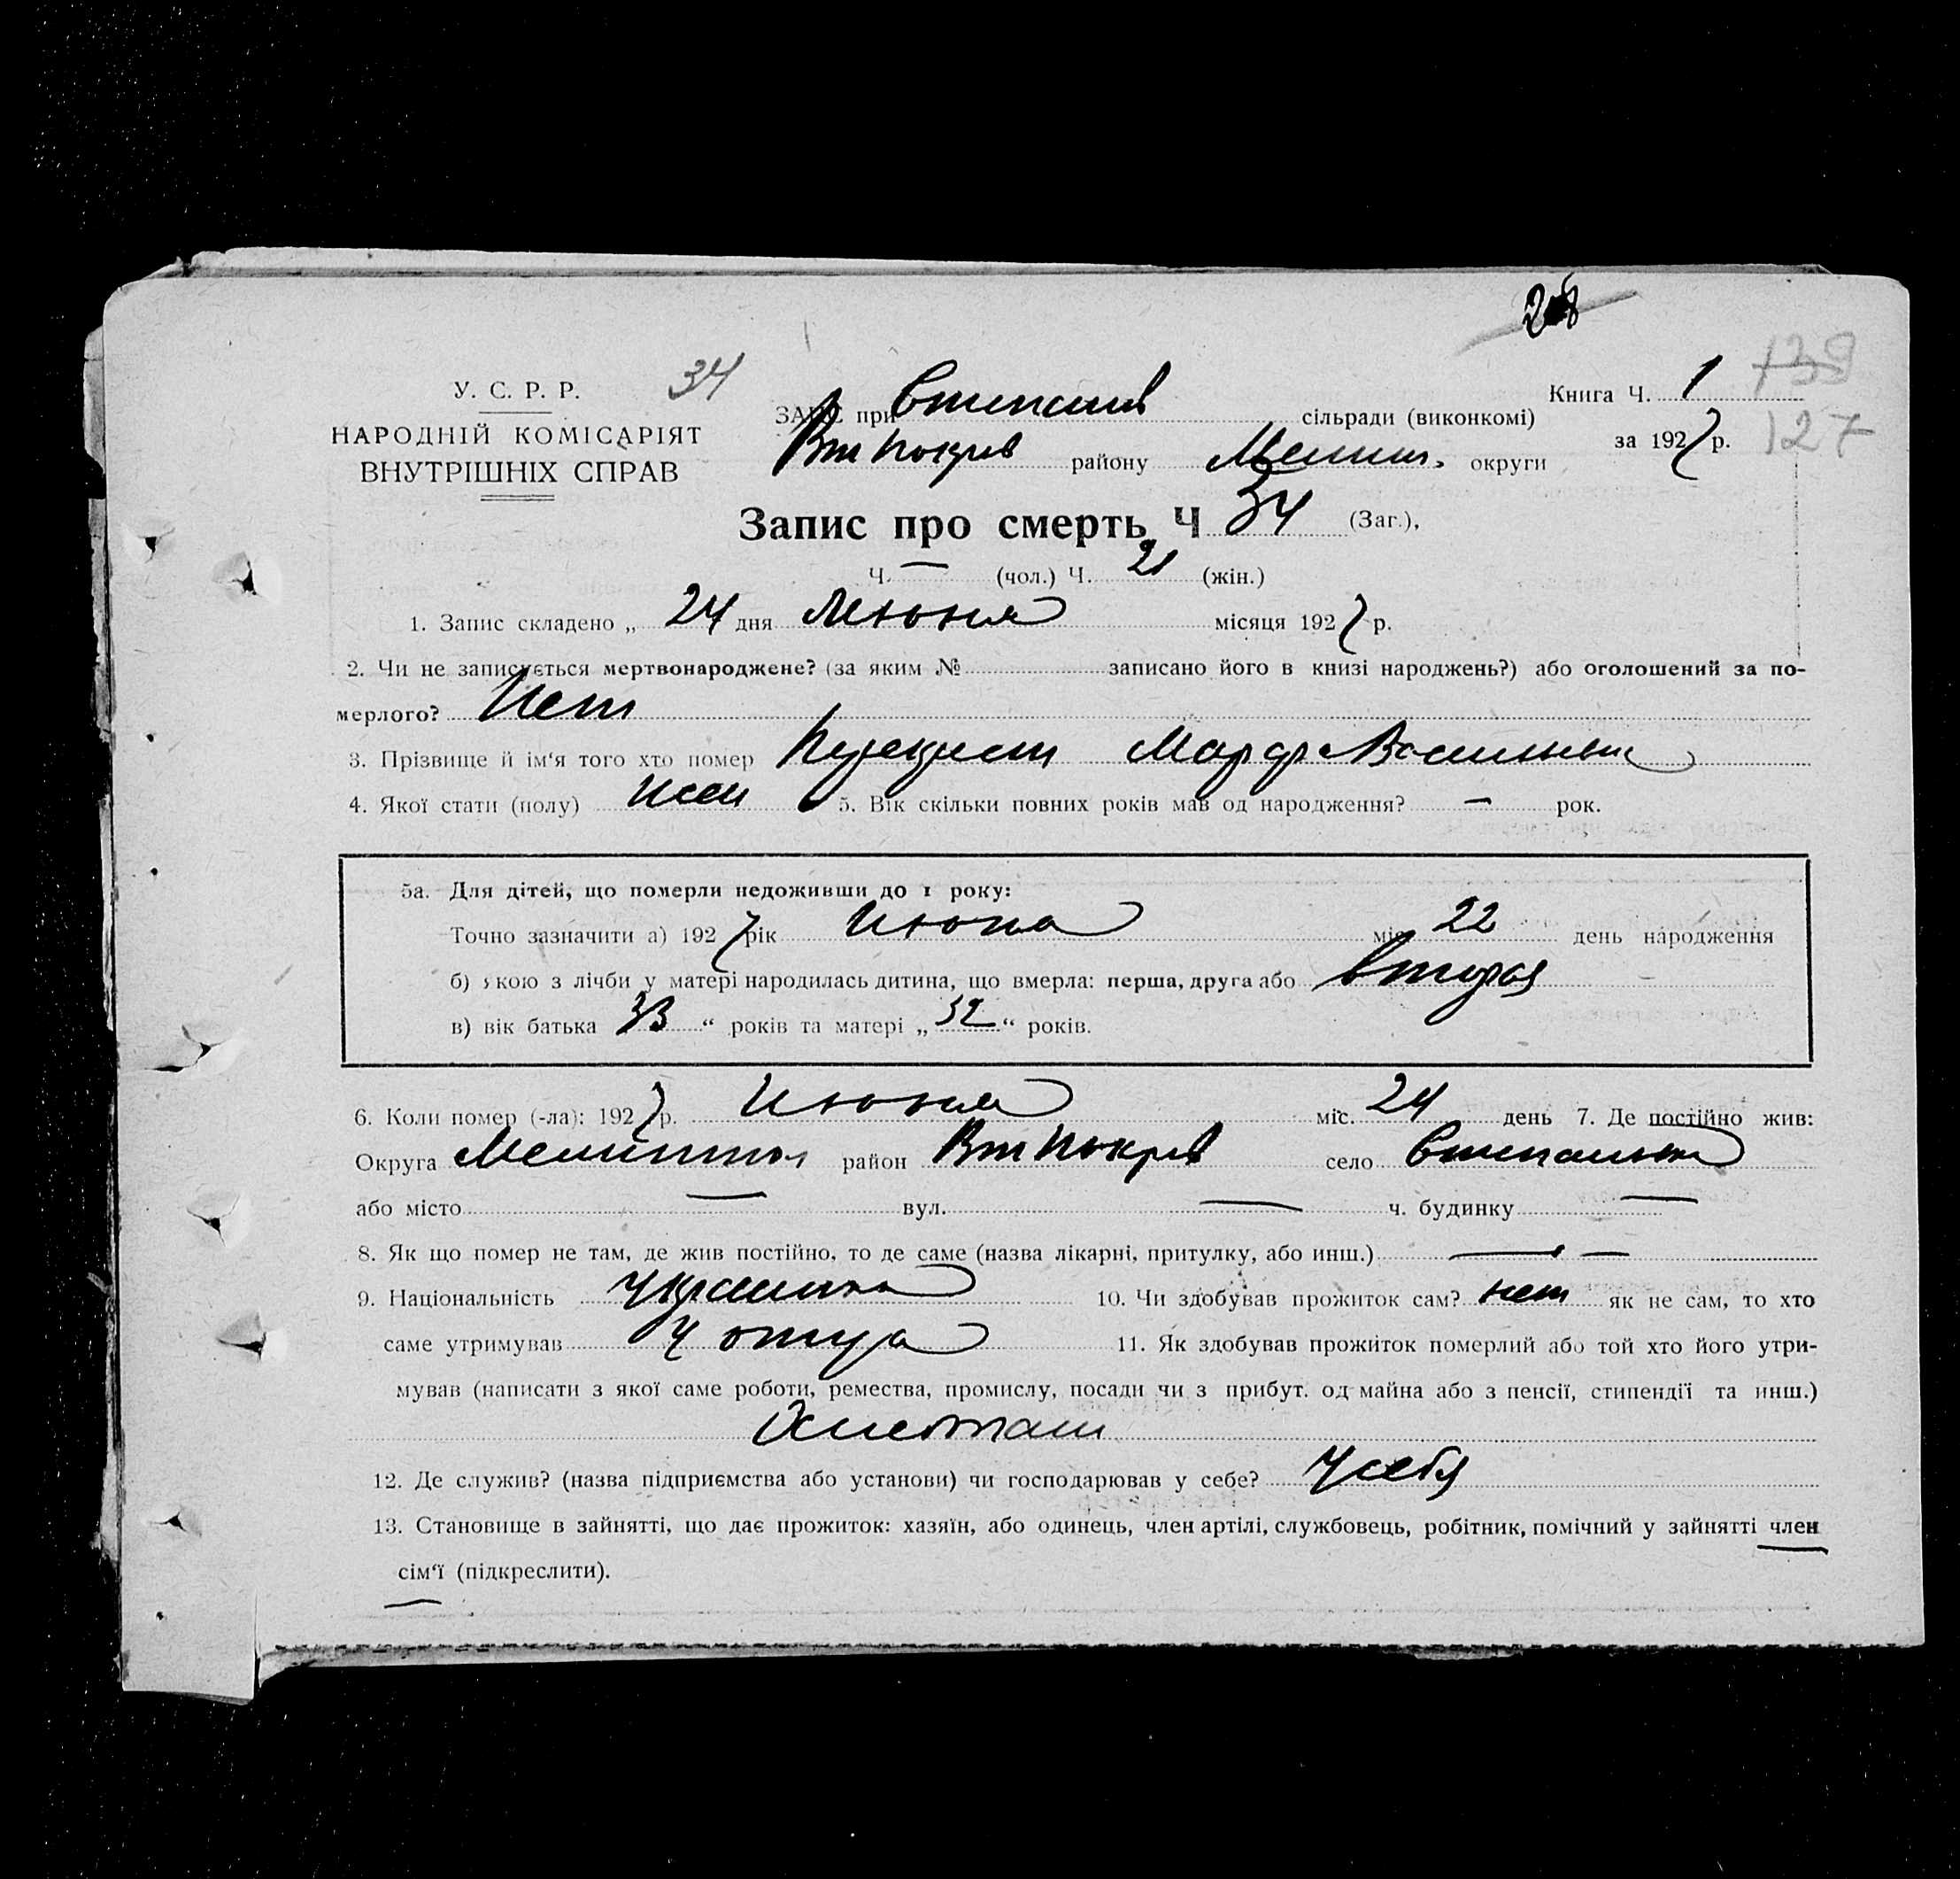 28
У. С. Р. Р.
34
ЗАПИС при Степанив сільради (виконкомі)
Книга Ч. 1
139
НАРОДНІЙ КОМІСАРІЯТ
ВНУТРІШНІХ СПРАВ
Вт Покров району Мелит. округи
за 1927 р.
127
Запис про смерть Ч 34 (Заг.),
Ч. — (чол.) Ч. 21 (жін.)
1. Запис складено „ 24 дня Июня місяця 1927 р.
2. Чи не записується мертвонароджене? (за яким № записано його в книзі народжень?) або оголошений за по-
мерлого? Нет
3. Прізвище й ім‘я того хто помер Марф Васильевна
4. Якої стати (полу) жен 5. Вік скільки повних років мав од народження? — рок.
5а. Для дітей, що померли недоживши до 1 року:
Точно зазначити а) 1927 рік Июня міс. 22 день народження
б) якою з лічби у матері народилась дитина, що вмерла: перша, друга або вторая
в) вік батька 33 “ років та матері „ 32 “ років.
6. Коли помер (-ла): 1927 р. Июня міс. 24 день 7. Де постійно жив:
Округа Мелитпол район Вт Покров село Степановка
або місто — вул. — ч. будинку —
8. Як що помер не там, де жив постійно, то де саме (назва лікарні, притулку, або инш.) — —
9. Національність Украинка 10. Чи здобував прожиток сам? нет як не сам, то хто
саме утримував У отца 11. Як здобував прожиток померлий або той хто його утри-
мував (написати з якої саме роботи, ремества, промислу, посади чи з прибут. од майна або з пенсії, стипендії та инш.)
12. Де служив? (назва підприємства або установи) чи господарював у себе? У себя
13. Становище в зайнятті, що дає прожиток: хазяїн, або одинець, член артілі, службовець, робітник, помічний у зайнятті член
сім‘ї (підкреслити).